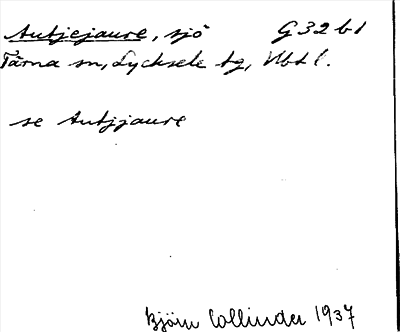 Autjejaure, sjö G32b1
Tärna sn, Lycksele tg, Vbtl.
se Autjjaure
Björn Collinder 1937